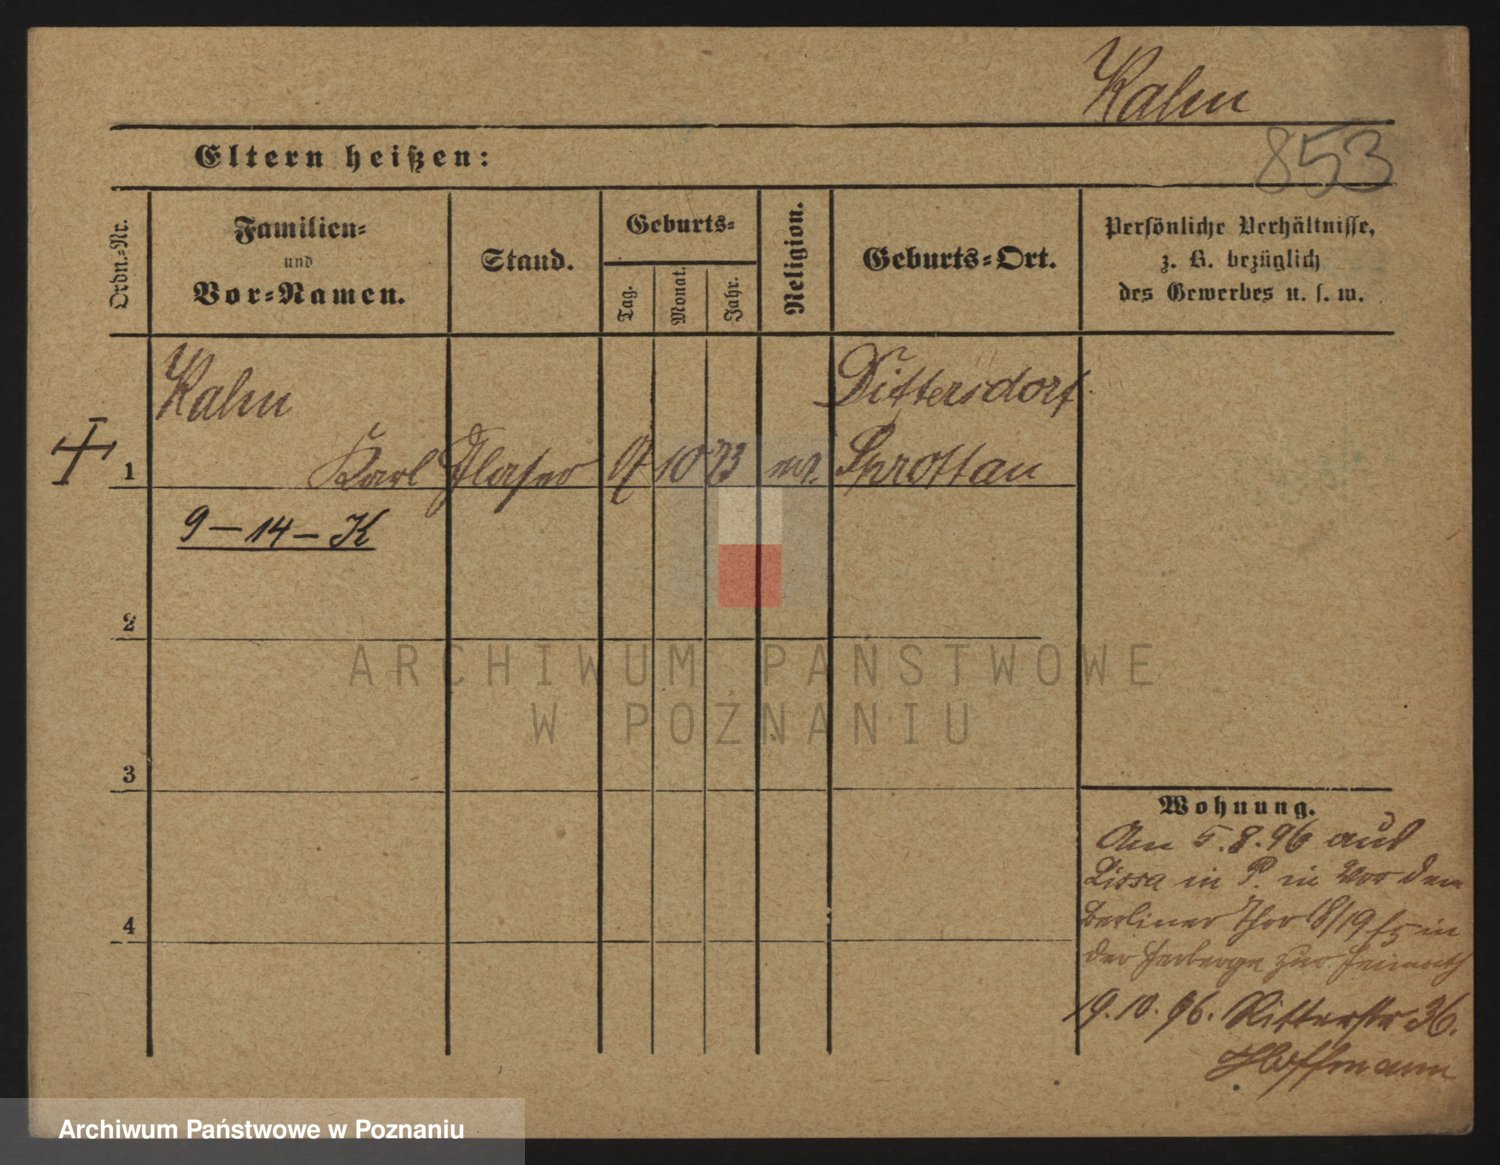 Kahn
853
Eltern heißen:
Ordn.-Nr.
Familien-
und
Vor-Namen.
Stand.
Geburts-
Tag.
Monat.
Jahr.
Religion.
Geburts-Ort.
Persönliche Verhältnisse,
z. B. bezüglich
des Gewerbes u. s. w.
Kahn
Dittersdorf
1
Karl
Glaser
9
10
73
Sprottau
9-14-K
2
ARCHIWUM PAŃSTWOWE
W POZNANIU
3
Wohnung.
Am 5.8.96 aus
Lissa in P. in Vor dem
Berliner Thor 18/19 in
4
der Herberge zur Heimath
19.10.96. Ritterstr 36.
Hoffmann
Archiwum Państwowe w Poznaniu